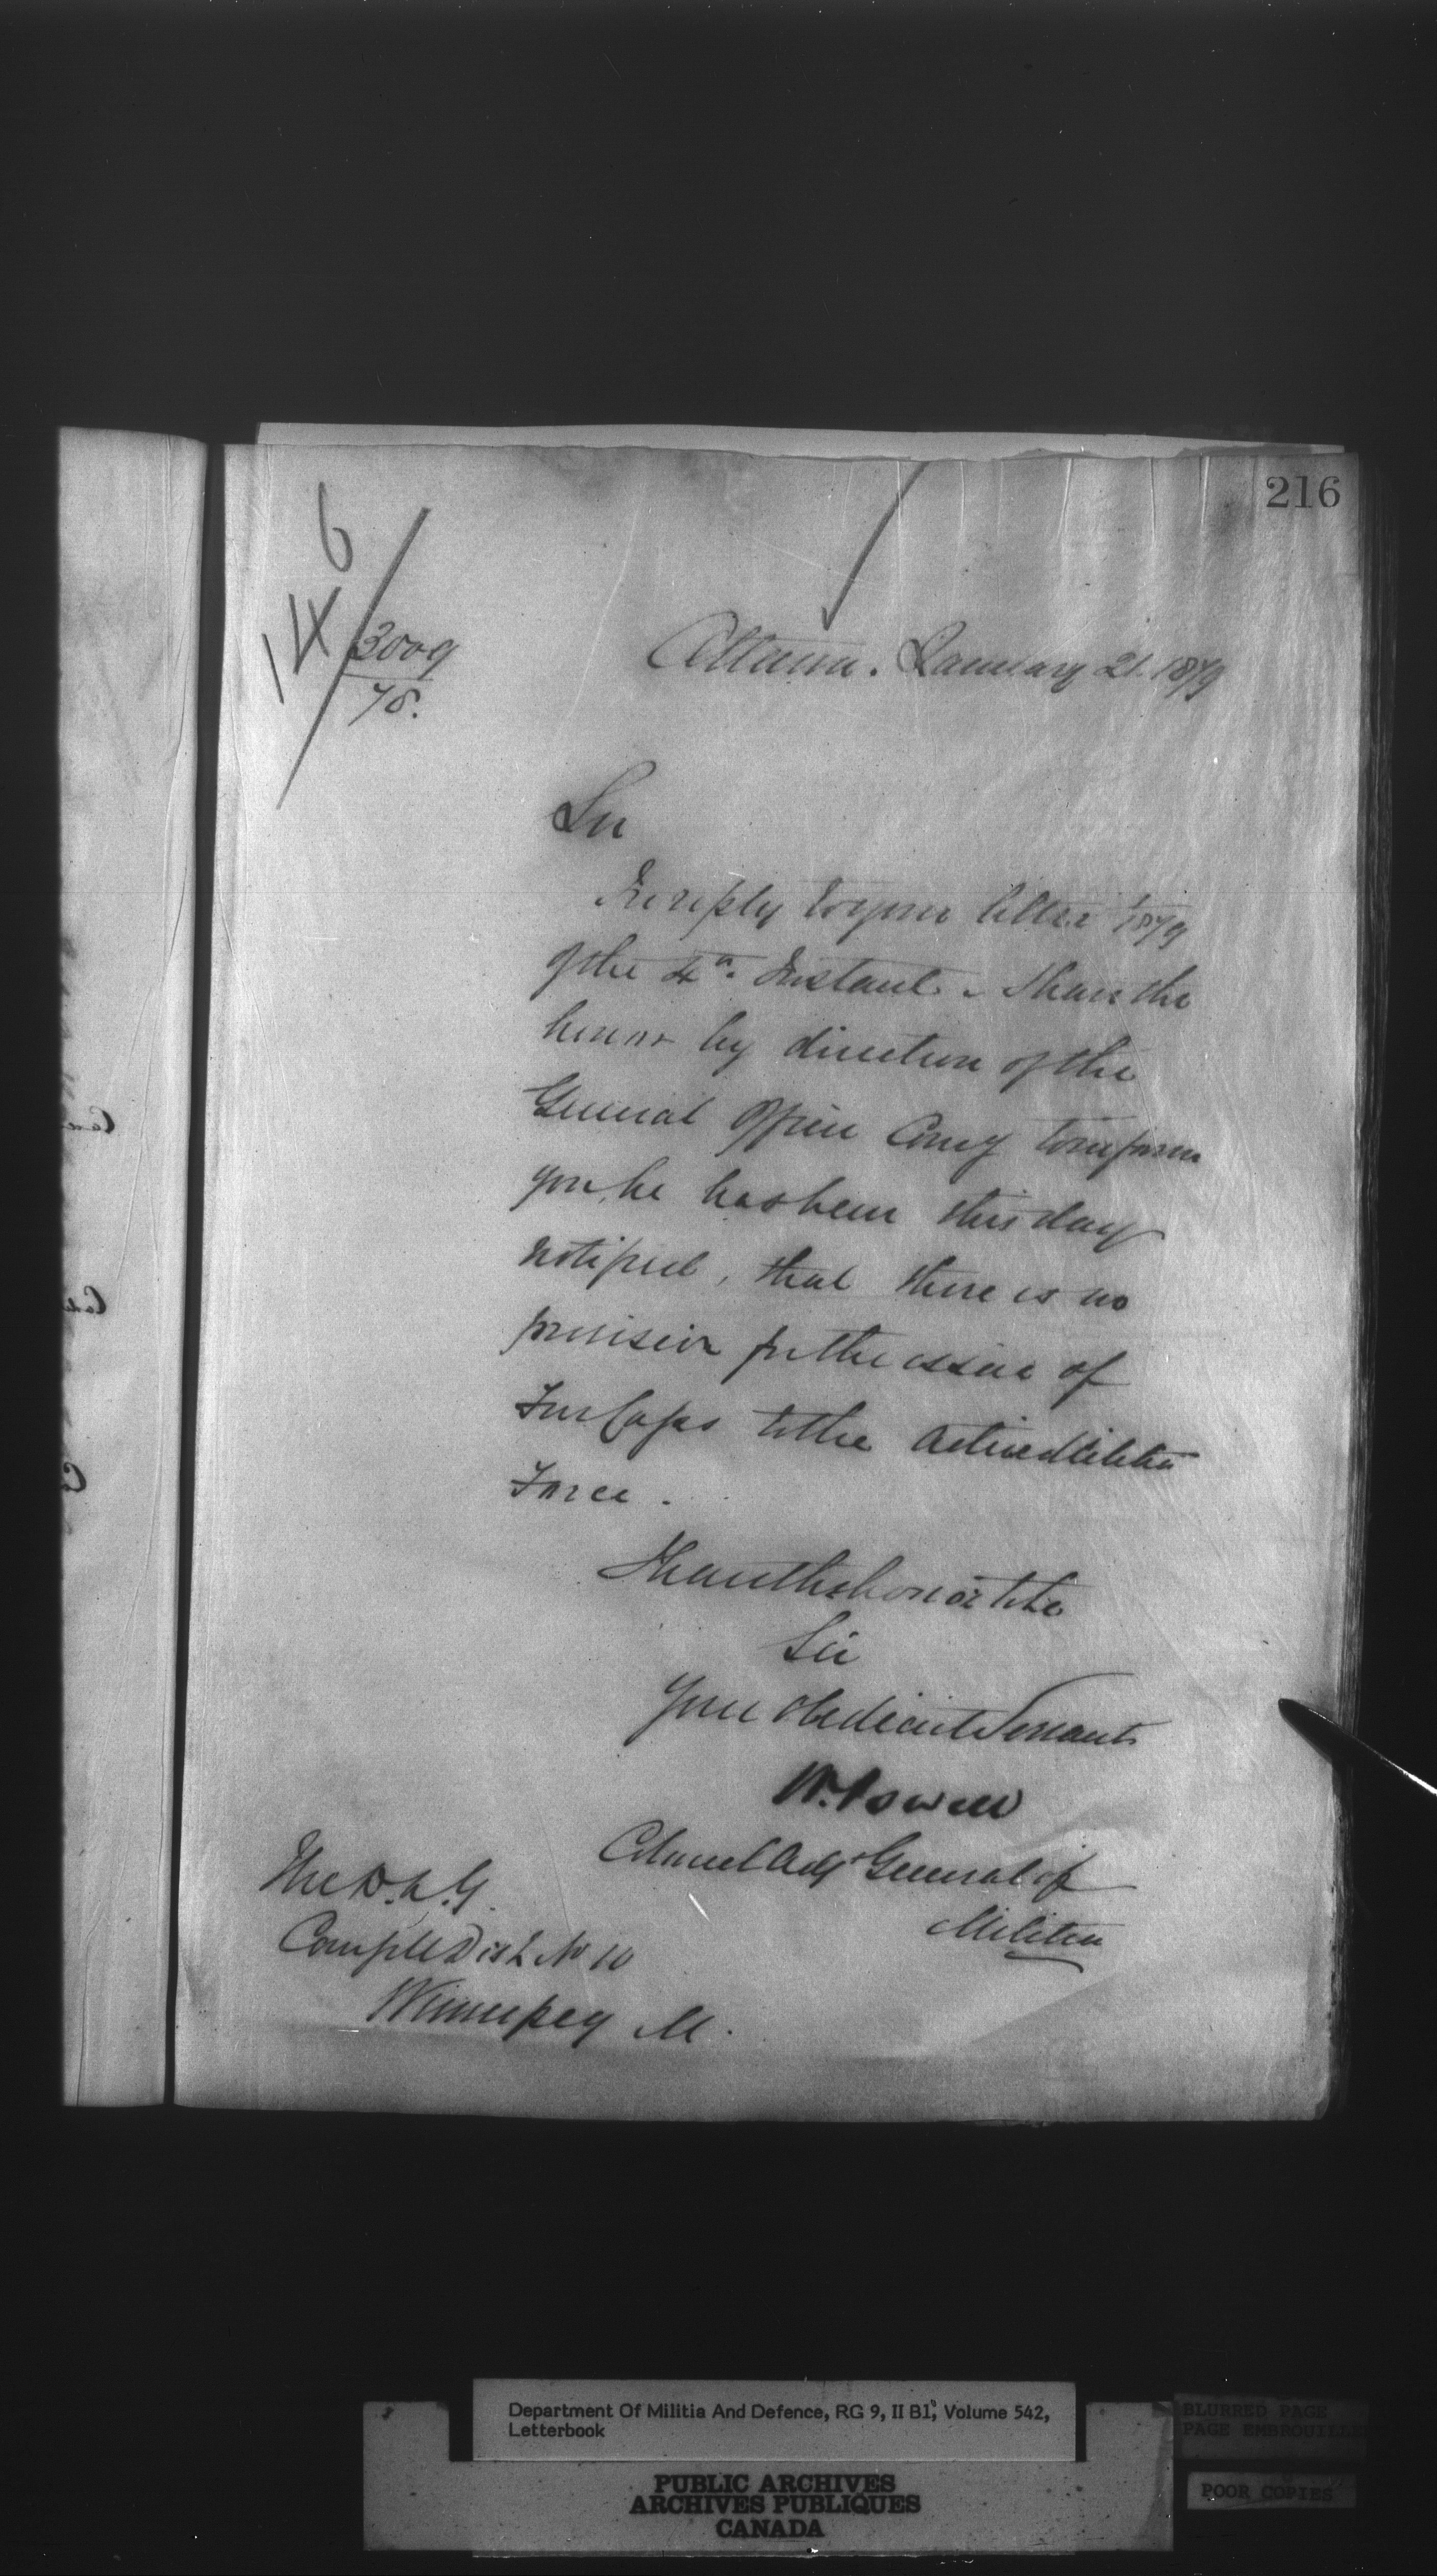 216
6
14
3009
78.
Ottawa. January 21. 1879
Sir
In reply to your letter 1/1879
of the 4th. Instant. I have the
honor by direction of the
General Officer Comg to inform
you he has been this day
notified, that there is no
provision for the issue of
Fur Caps to the Active Militia
Force.
I have the honor to be
Sir
Your obedient Servant
W. Powell
Colonel Adjt General of
Militia
The D.A.G.
Comg Mil Dist No 10
Winnipeg M.
Department Of Militia And Defence, RG 9, II B1, Volume 542,
Letterbook
PUBLIC ARCHIVES
ARCHIVES PUBLIQUES
CANADA
BLURRED PAGE
PAGE EMBROUILLEE
POOR COPIES